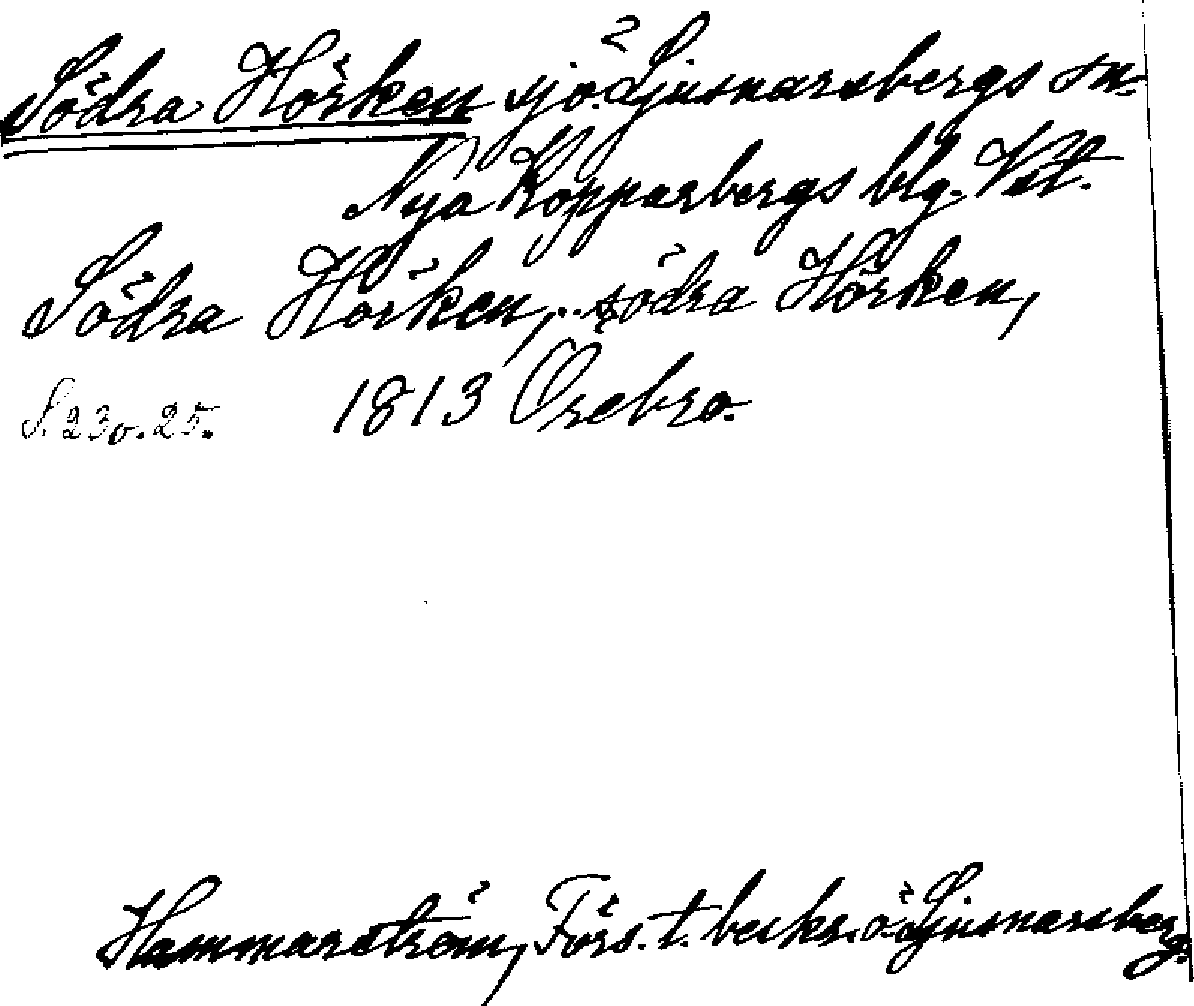 Södra Hörken sjö. Ljusnarsbergs sn.
Nya Kopparbergs blg. Vst.
Södra Hörken, södra Hörken,
S. 230. 25. 1813 Örebro.
Hammarström, Förs. t. beskr. ö. Ljusnarsberg.